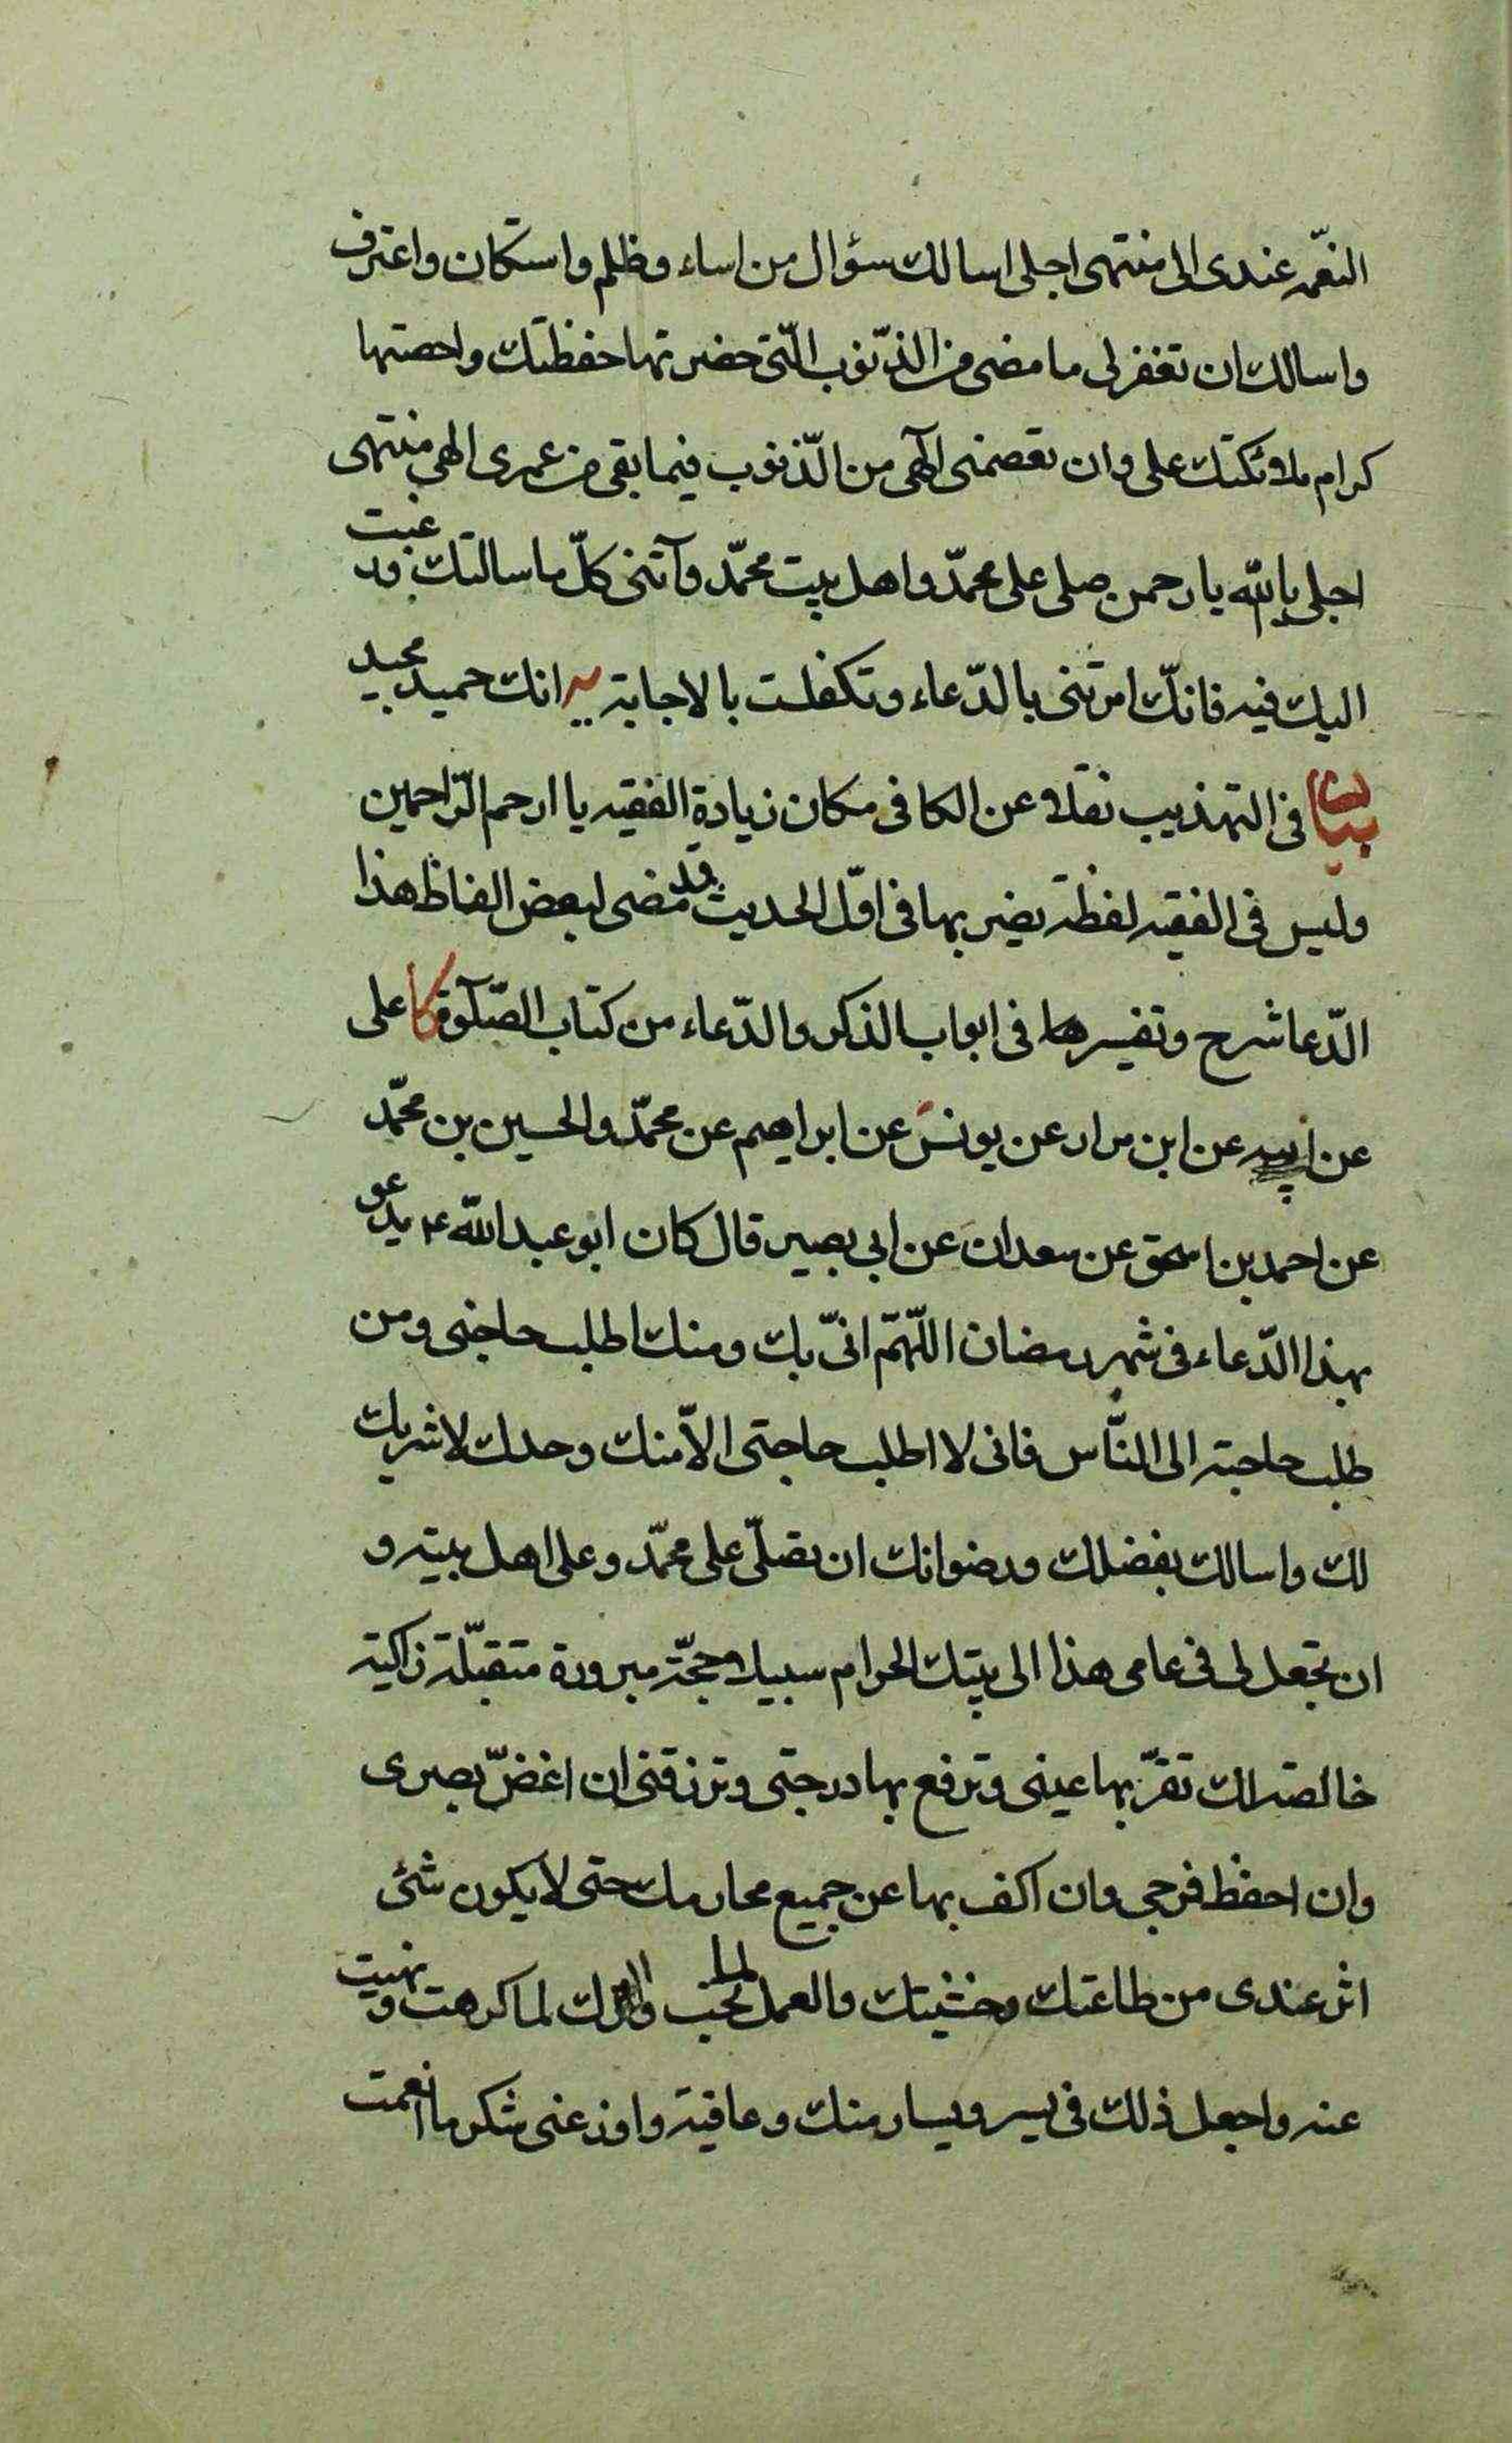 النعّمه عندى الى منتهى اجلى اسالك سؤال من اساء وظلم واستكان واعترف
واسالك ان تغفر لى ما مضى من الذنوب الّتى حضرتها حفظتك واحصتها
كرام ملائكتك على وان تعصمنى الهى من الذنوب فيما بقى من عمرى الهى منتهى
اجلى يا الله يا رحمن صلى على محمّد واهل بيت محمّد وآتنى كلّ ما سالتك ورغبت
اليك فيه فانكّ امرتنى بالدّعاء وتكفلت بالاجابة يه انك حميد مجيد
بيان فى التهذيب نقلا عن الكافى مكان زيادة الفقيه يا ارحم الرّاحمين
وليس فى الفقيه لفظة يضير بها فى اوّل الحديث وقد مضى لبعض الفاظ هذا
الدّعا شرح وتفسيرها فى ابواب الذكر والدّعاء من كتاب الصّلوة كا على
عن ابيه عن ابن مرار عن يونس عن ابراهيم عن محمّد والحسين بن محمّد
عن احمد بن اسحق عن سعدان عن ابى بصير قال كان ابو عبد الله ع يدعو
بهذا الدّعاء فى شهر رمضان اللّهمّ انىّ بك ومنك اطلب حاجتى ومن
طلب حاجة الى النّاس فانى لا اطلب حاجتى الاّ منك وحدك لا شريك
لك واسالك بفضلك ورضوانك ان تصلّى على محمّد وعلى اهل بيته و
ان تجعل لى فى عامى هذا الى بيتك الحرام سبيلا حجّة مبرورة متقبّلة زاكية
خالصة لك تقرّ بها عينى وترفع بها درجتى وترزقنى ان اغضّ بصرى
وان احفظ فرجى وان اكف بها عن جميع محارمك حتى لا يكون شئ
اثر عندى من طاعتك وخشيتك والعمل لما تحب والترك لما كرهت ونهيت
عنه واجعل ذلك فى يسر ويسار منك وعافية واوزعنى شكر ما انعمت